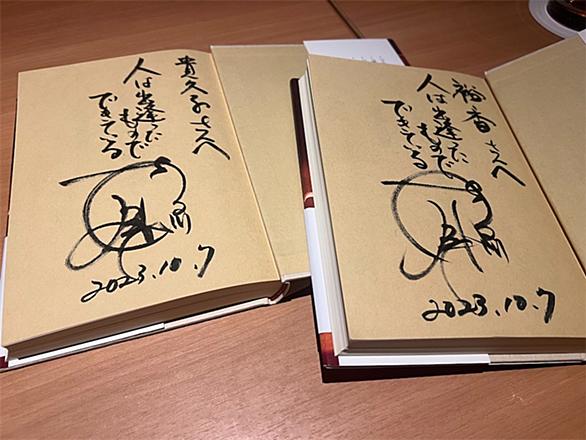 貴久子さんへ
人は出逢った
もので
できている
2023.10.7
裕香さんへ
人は出逢った
もので
できている
2023.10.7